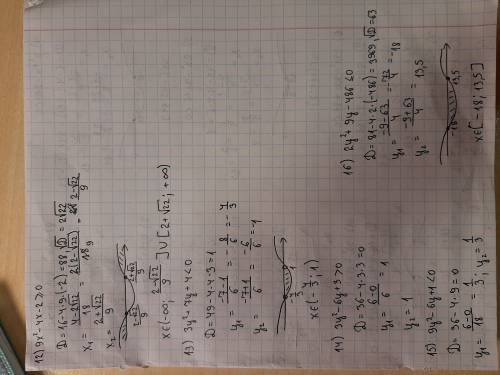 12) 9x² - 4x - 2 ≥ 0
D = 16 - 4·9·(-2) = 88, √D = 2√22
x₁ = (4 - 2√22)/18 = 2(2 - √22)/18 = (2 - √22)/9
x₂ = (2 + √22)/9
(2 - √22)/9 (2 + √22)/9
x ∈ (-∞; (2 - √22)/9] ∪ [2 + √22; +∞)
13) 3y² + 7y + 4 < 0
D = 49 - 4·4·3 = 1
y₁ = (-7 - 1)/6 = -8/6 = -4/3
y₂ = (-7 + 1)/6 = -6/6 = -1
-4/3 1
x ∈ (-4/3; 1)
14) 3y² - 6y + 3 > 0
D = 36 - 4·3·3 = 0
y₁ = (6 - 0)/6 = 1
y₂ = 1
15) 9y² - 6y + 1 < 0
D = 36 - 4·9 = 0
y₁ = (6 - 0)/18 = 1/3; y₂ = 1/3
16) 2y² + 9y - 486 ≤ 0
D = 81 - 4·2·(-486) = 3969, √D = 63
y₁ = (-9 - 63)/4 = -72/4 = -18
y₂ = (-9 + 63)/4 = 13,5
-18 13,5
x ∈ [-18; 13,5]